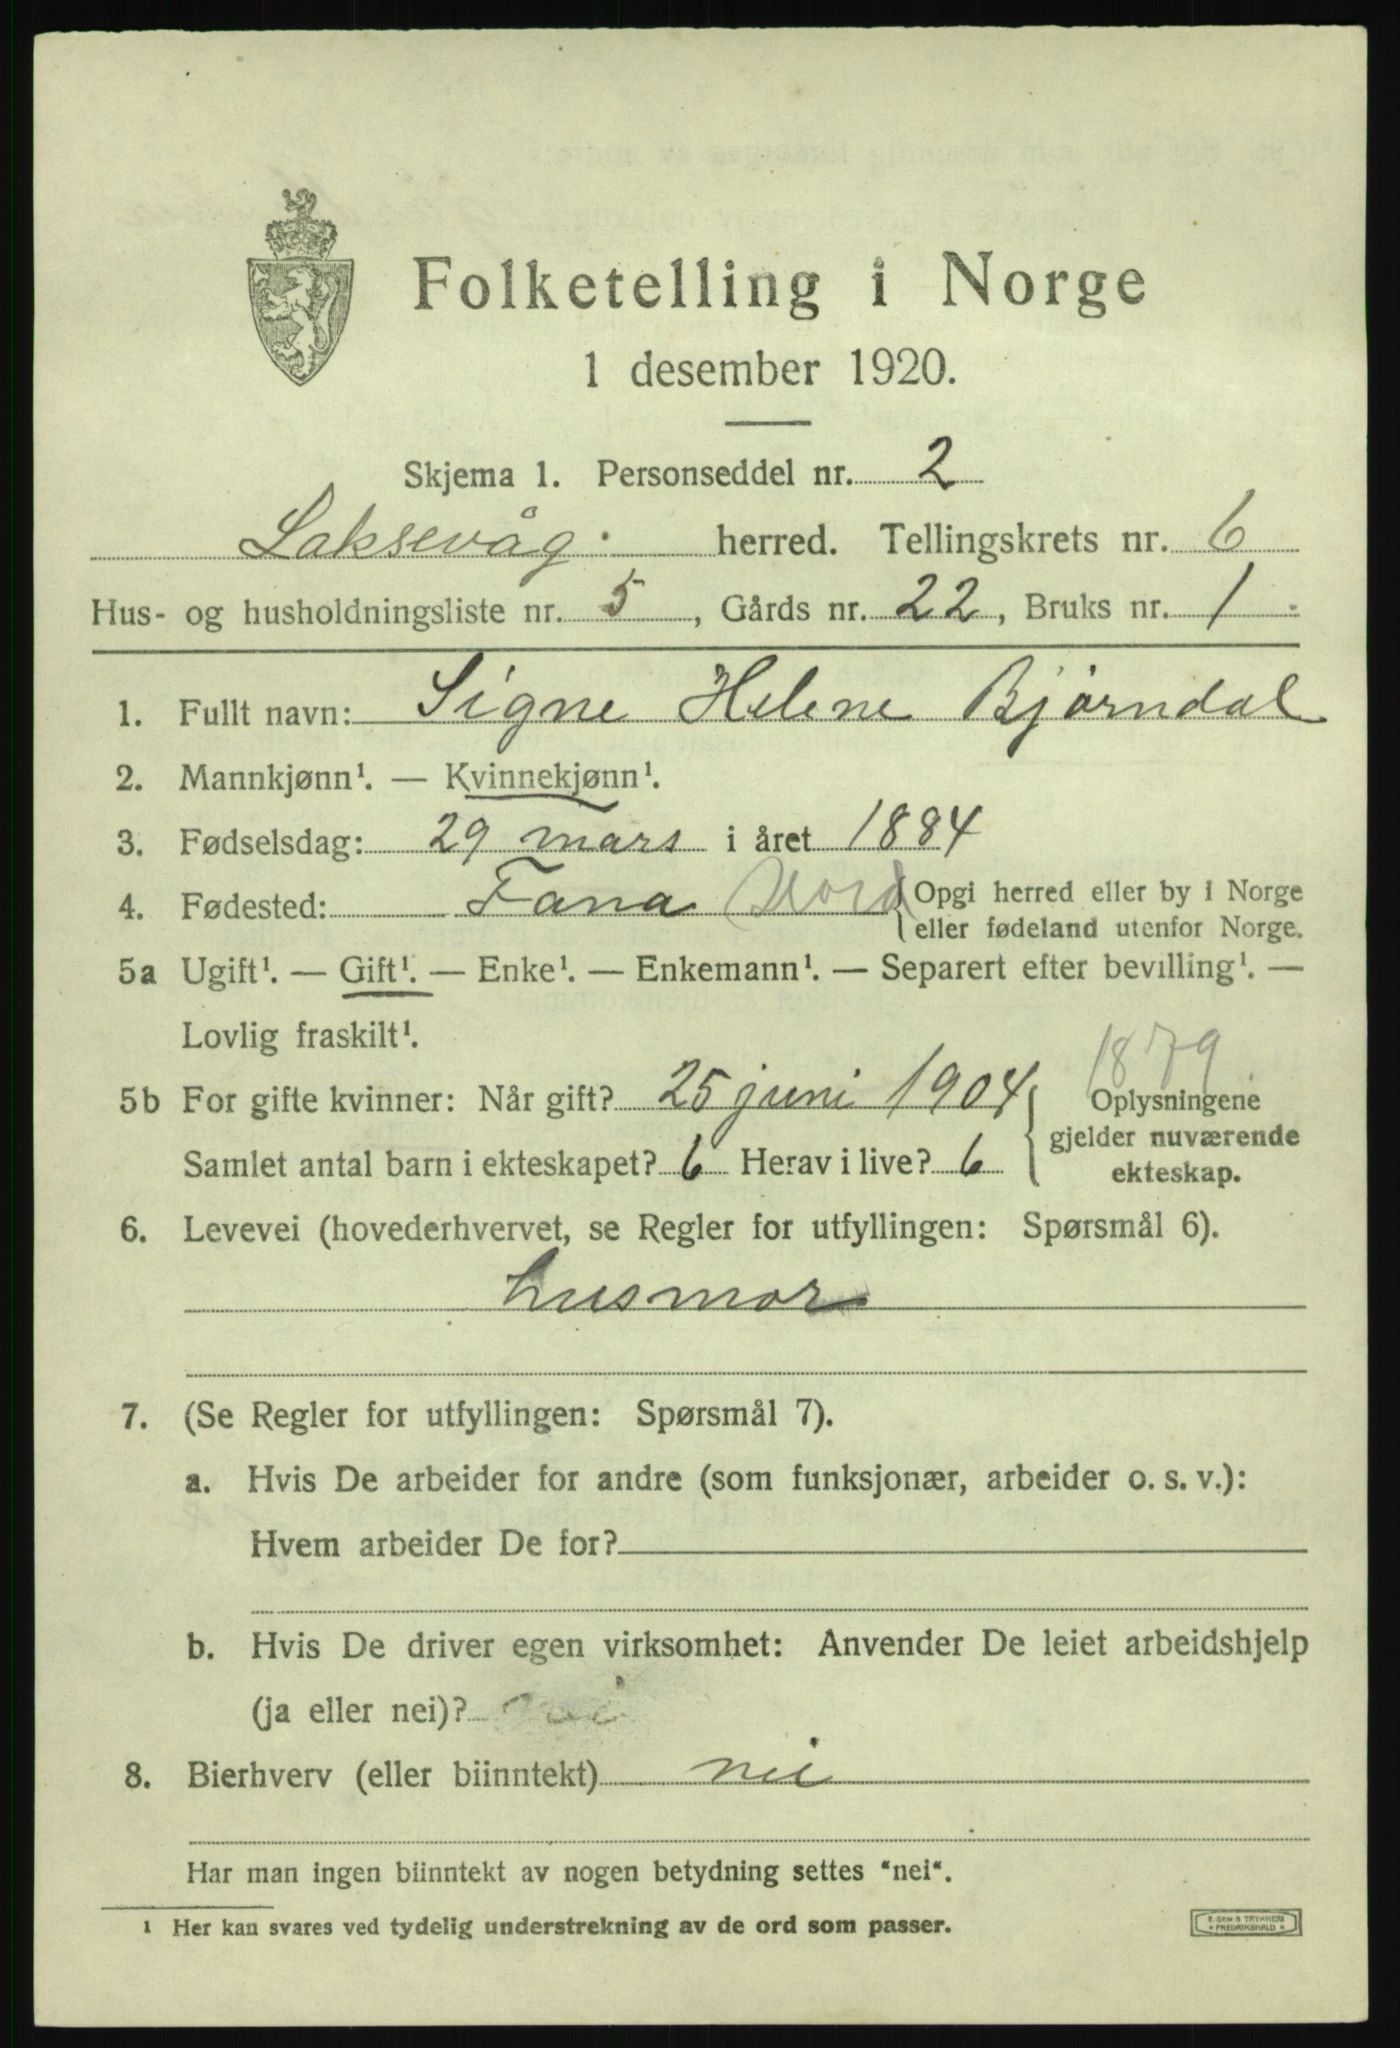 Folketelling i Norge
1 desember 1920.
Skjema 1. Personseddel nr. 2
Laksevåg herred. Tellingskrets nr. 6
Hus- og husholdningsliste nr. 5, Gårds nr. 22, Bruks nr. 1
1. Fullt navn: Signe Helene Bjørndal
2. Mannkjønn¹. — Kvinnekjønn¹.
3. Fødselsdag: 29 mars i året 1884
4. Fødested: Fana Hord Opgi herred eller by i Norge
eller fødeland utenfor Norge.
5a Ugift¹. — Gift¹. — Enke¹. — Enkemann¹. — Separert efter bevilling¹. —
Lovlig fraskilt¹.
1879
5b For gifte kvinner: Når gift? 25 juni 1904 Oplysningene
gjelder nuværende
Samlet antal barn i ekteskapet? 6 Herav i live? 6 ekteskap.
6. Levevei (hovederhvervet, se Regler for utfyllingen: Spørsmål 6).
husmor
7. (Se Regler for utfyllingen: Spørsmål 7).
a. Hvis De arbeider for andre (som funksjonær, arbeider o. s. v.):
Hvem arbeider De for?
b. Hvis De driver egen virksomhet: Anvender De leiet arbeidshjelp
(ja eller nei)? nei
8. Bierhverv (eller biinntekt) nei
Har man ingen biinntekt av nogen betydning settes "nei".
¹ Her kan svares ved tydelig understrekning av de ord som passer.